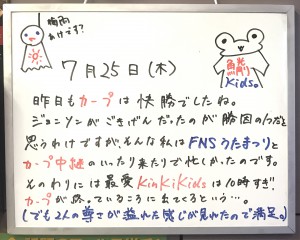 梅雨
あけです?
7月25日(木)
Kids。
昨日もカープは快勝でしたね。
ジョンソンがごきげんだったのが勝因の1つだと
思うわけですが、そんな私はFNSうたまつりと
カープ中継のいったり来たりで忙しかったのです。
そのわりには最愛KinKiKidsは10時すぎ!
カープが勝っているころに出てくるという…。
(でも2人の尊さが溢れた感じが見れたので満足。)